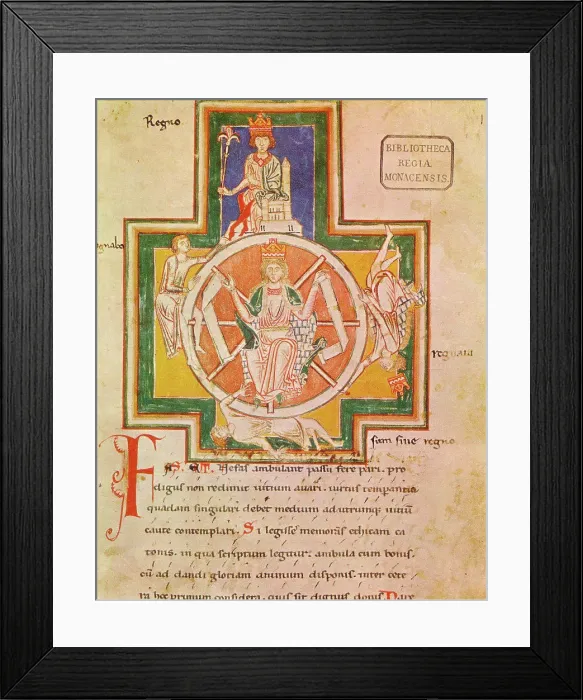 Regno
BIBLIOTHECA
REGIA
MONACENSIS.
gnabo
regnaui
sum sine regno
Fas et Nefas ambulant passu fere pari. pro
digus non redimit uitium auari. uirtus temperantia
quadam singulari debet medium ad utrumque uitiū
caute contemplari. Si legisse memoras ethicam ca
tonis. in qua scriptum legitur. ambula cum bonis.
cū ad dandi gloriam animum disponis. inter cete
ra hoc primum considera. quis sit dignus donis